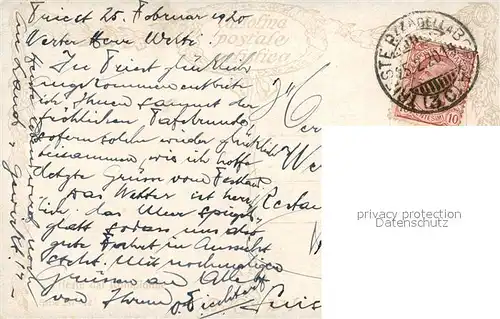 Triest 25. Februar 1920
Werter Herr Werti
In Triest glücklich
angekommen entbiet
ich Ihnen samt der
fröhlichen Tafelrunde
sofern solche wieder glücklich
beisammen, wie ich hoffe
letzte Grüsse vom Festland
Das Wetter ist herr
lich. das Meer spiegel
glatt sodass uns das
gute Fahrt in Aussicht
steht. Mit nochmaligen
Grüssen an Alle
von Ihrem
Heute Abend wird noch
an Land
cartolina
postale
TRIESTE P.ZZA DELLA B
(3C)
10
"Her
We
Restau
Suis
privacy protection
Datenschutz